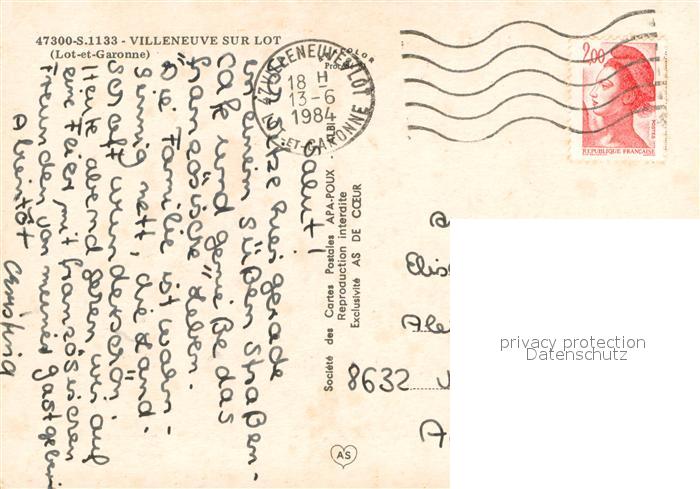 47300-S.1133 - VILLENEUVE SUR LOT
(Lot-et-Garonne)
VILLENEUVE S/LOT
18 H
13-6
1984
LOT-ET-GARONNE
2,00
POSTES
REPUBLIQUE FRANÇAISE
Salut!
sitze hier gerade
in einem süßen Straßen-
café und genieße das
französische Leben.
Die Familie ist wahn-
sinnig nett, die Land-
schaft wunderschön.
Heute abend gehen wir auf
eine Feier mit französischen
Freunden von meinen Gastgebern
A bientôt
Christina
Société des Cartes Postales APA-POUX - ALBI
Reproduction interdite
Exclusivité AS DE CŒUR
AS
8632
privacy protection
Datenschutz